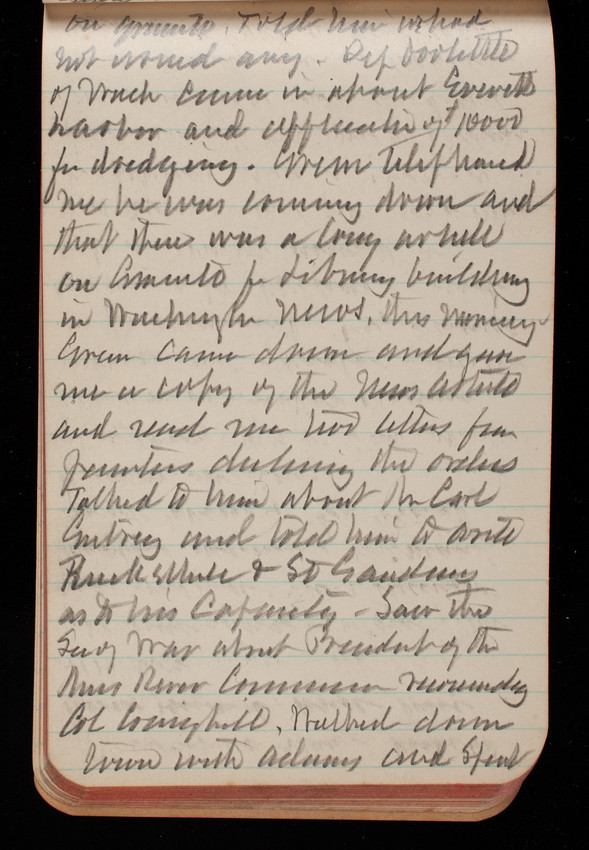 on granite. Told him we had
not issued any. Rep Doolittle
of Wash came in about Everett
harbor and application of 10000
for dredging. Green telephoned
me he was coming down and
that there was a long article
on Granite for Library building
in Washington News, this morning
Green came down and gave
me a copy of the News article
and read me two letters from
painters declining the orders
Talked to him about Mr Carl
and told him to write
Ruckstuhl & St Gaudens
as to his Capacity - Saw the
Sec of War about President of the
Miss River Commission
Col. Walked down
town with Adams and Spent